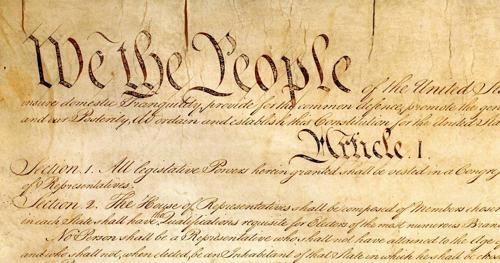 We the People of the United Sta
insure domestic Tranquility, provide for the common defence, promote the ge
and our Posterity, do ordain and establish this Constitution for the United Sta
Article. I.
Section. 1. All legislative Powers herein granted shall be vested in a Congr
of Representatives.
Section. 2. The House of Representatives shall be composed of Members chosen
in each State shall have Qualifications requisite for Electors of the most numerous Bran
No Person shall be a Representative who shall not have attained to the Age
and who shall not, when elected, be an Inhabitant of that State in which he shall be cho